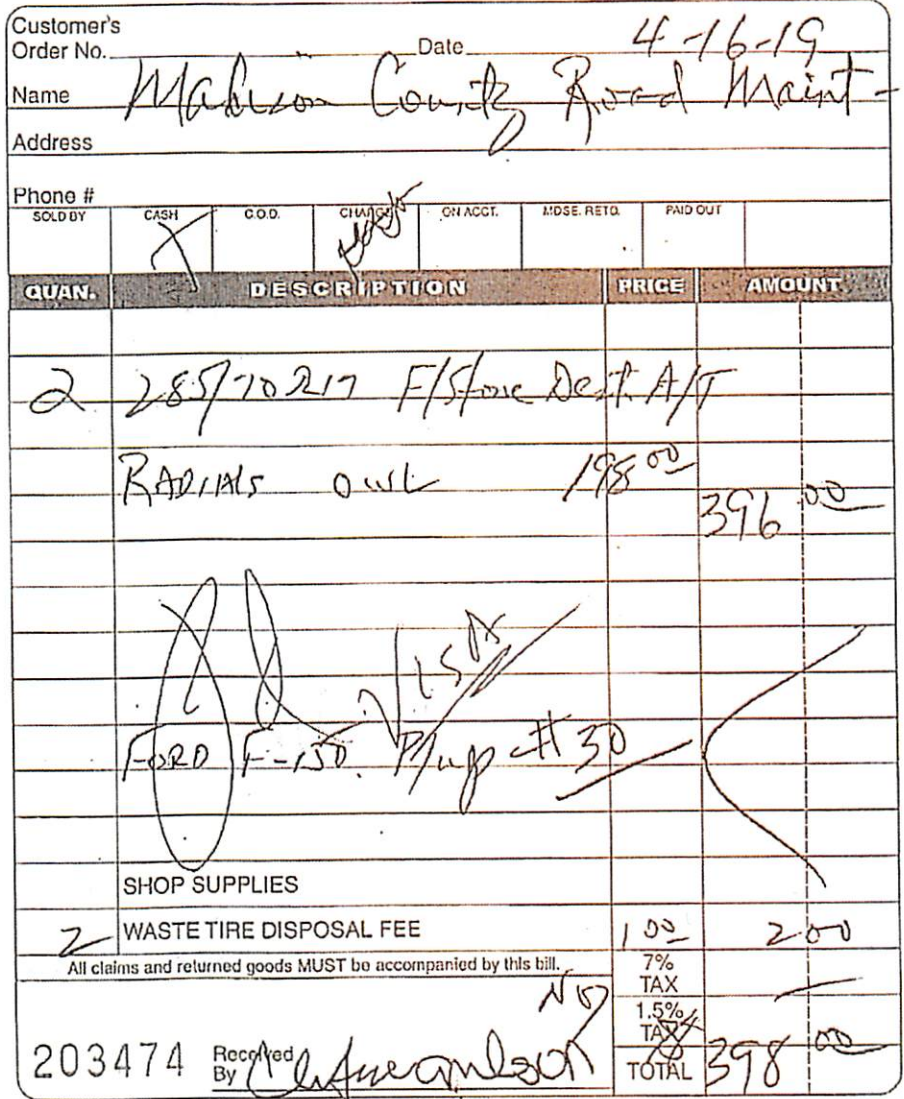 Customer's
Order No. Date 4-16-19
Name Madison County Road Maint-
Address
Phone #
SOLD BY CASH C.O.D. CHARGE ON ACCT. MDSE. RETD. PAID OUT
X
QUAN. DESCRIPTION PRICE AMOUNT
2 285/70R17 F/Stone Dest. A/T
RADIALS OWL 198 00 396 00
VISA
FORD F-150 P/up #30
SHOP SUPPLIES
2 WASTE TIRE DISPOSAL FEE 1 00 2 00
All claims and returned goods MUST be accompanied by this bill.
7%
TAX —
1.5%
TAX
203474 Received
By
TOTAL 398 00